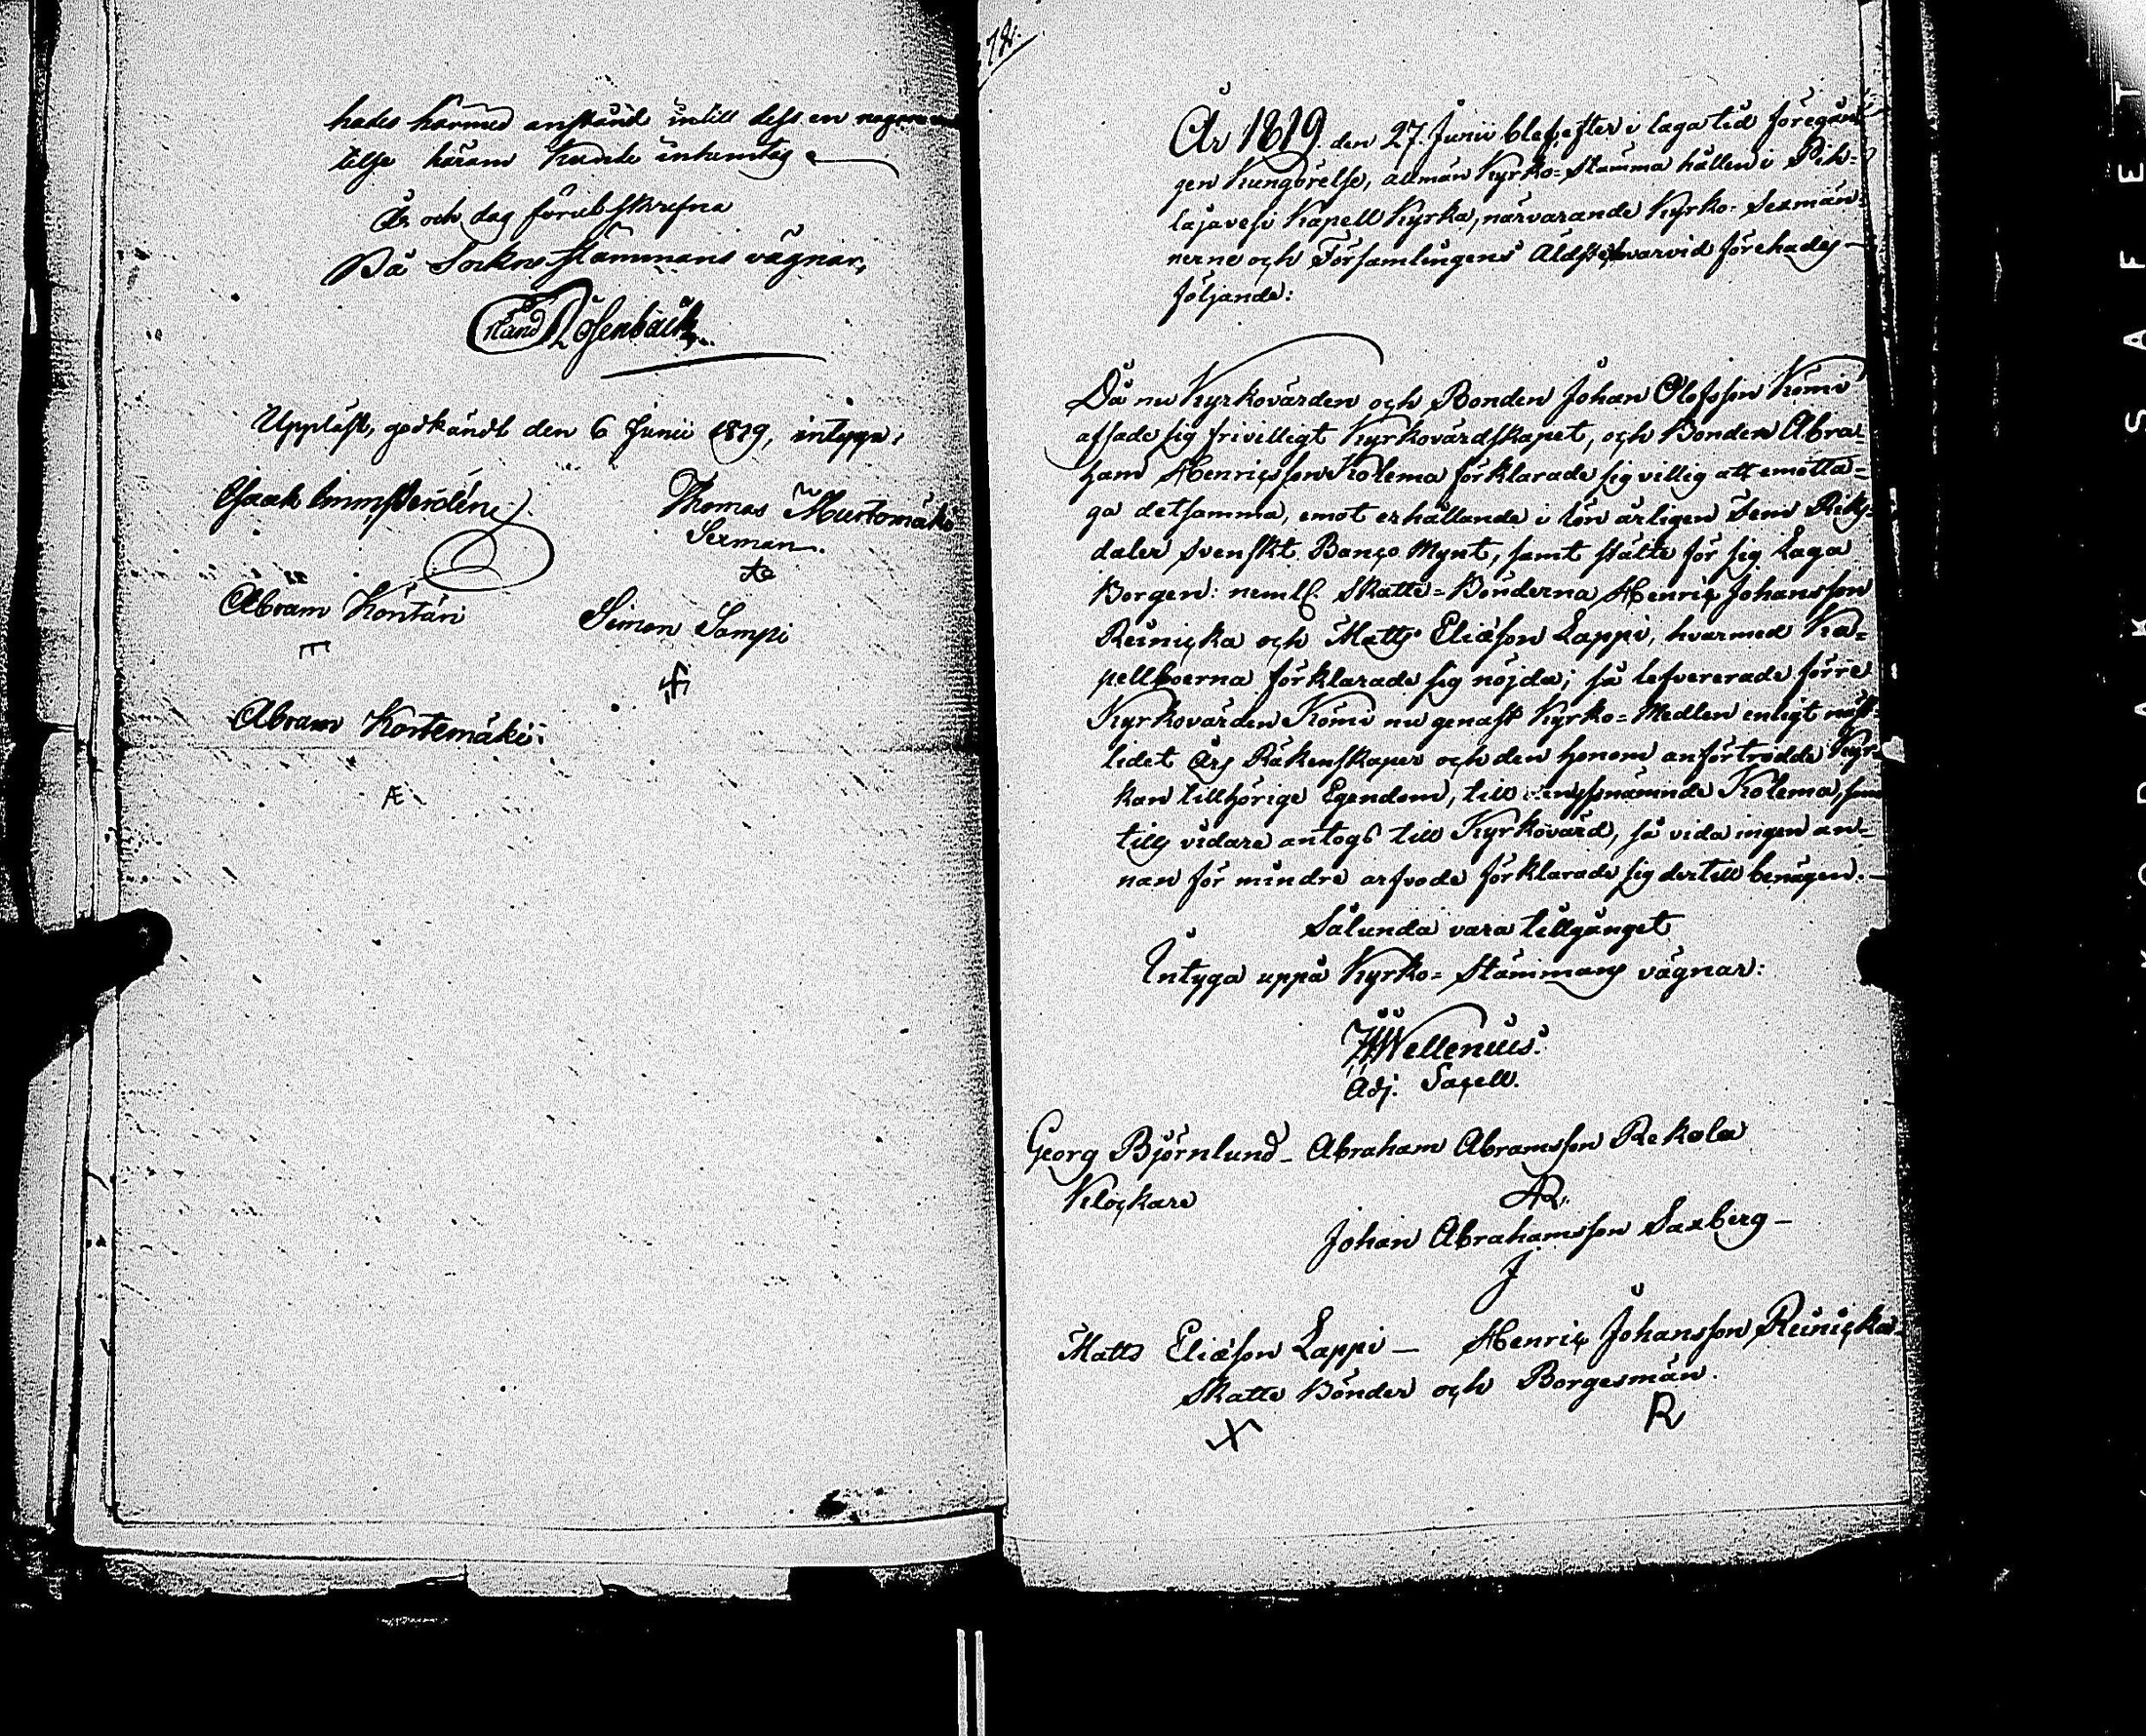 hades härmed anstånd intill dess en nogare
telse härom hunde inhemtas
År och dag förutskrefne
På Sockne stämmans vägnar,
Erland Rosenback
Uppläst, godkändt den 6 Junii 1819, intyga:
Thomas Murtomäki
Sexman.
Abram Köntäri
Simon Sampi
Abram Kortemäki
Æ
78.
År 1819. den 27. Junii blef, efter i laga tid föregån
gen Kungörelse, allmän Kyrko-Stämma hållen i Pih-
lajavesi Kapell Kyrka, närvarande Kyrko-Sexmän-
nerne och Församlingens Äldste, hvarvid förehades
följande:
Då nu Kyrkovärden och Bonden Johan Olofsson Kömi
afsade sig frivilligt Kyrkovärdskapet, och Bonden Abra-
ham Henricsson Kolema förklarade sig villig att emotta-
ga detsamma, emot erhållande i lön årligen Fem Riks-
daler Svenskt Banco Mynt, samt stälte för sig Laga
Borgen: neml. Skatte-Bönderna Henric Johansson
Reinicka och Matts Eliæson Lappi, hvarmed Ka-
pellboerna förklarade sig nöjda; så lefvererade förre
Kyrkovärden Kömi nu genast Kyrko-Medlen enligt näst-
lidet Års Räkenskaper och den honom anförtrodde Kyr-
kan tillhörige Egendom, till nämnde Kolema, som
tills vidare antogs till Kyrkovärd, så vida ingen an-
nan för mindre arfvode förklarade sig dertill benägen.
Sålunda vara tillgånget
Intyga uppå Kyrko-Stämmans vägnar:
Wellenius.
Adj. Sacell.
Georg Björnlund - Abraham Abramsson Rekola
Klockare
AR.
Johan Abrahamsson Saxberg -
J
Matts Eliæson Lappi - Henric Johansson Reinicka.
Skatte Bönder och Borgesmän.
R
KODAK SAFET